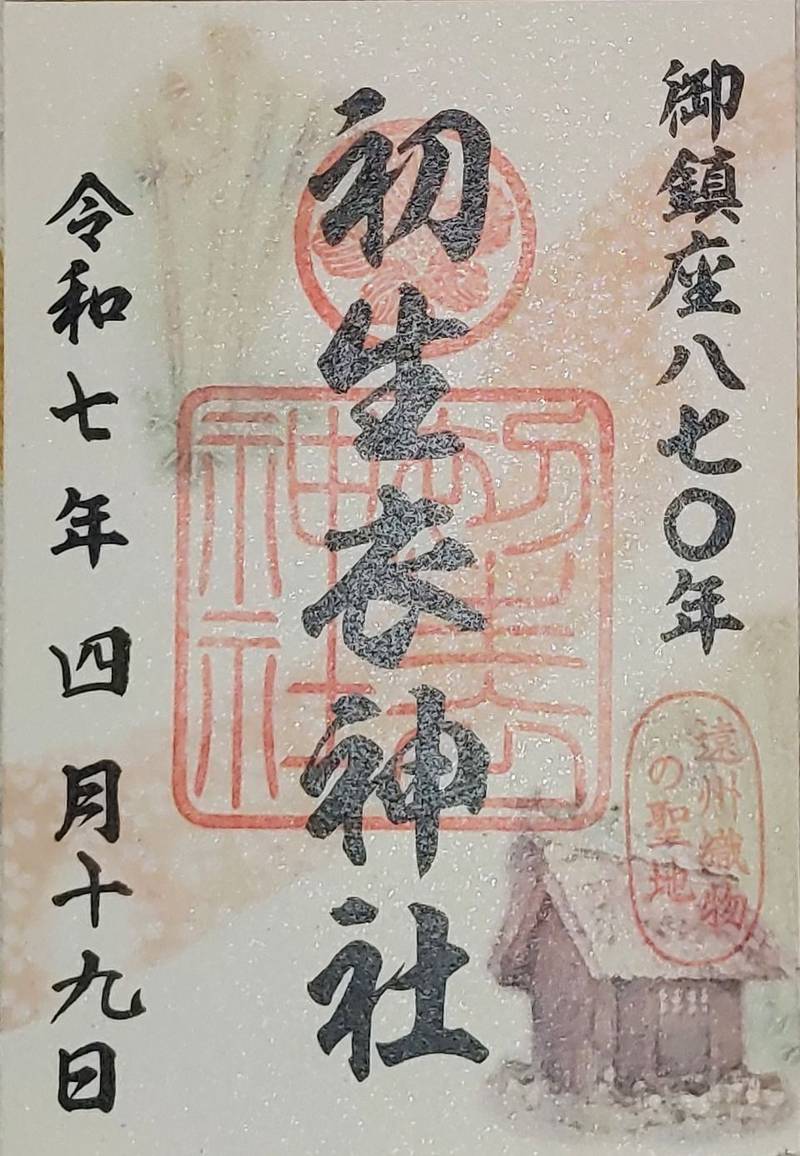 御鎮座八七〇年
遠州織物
の聖地
初生衣神社
初生衣
神社
令和七年 四月十九日